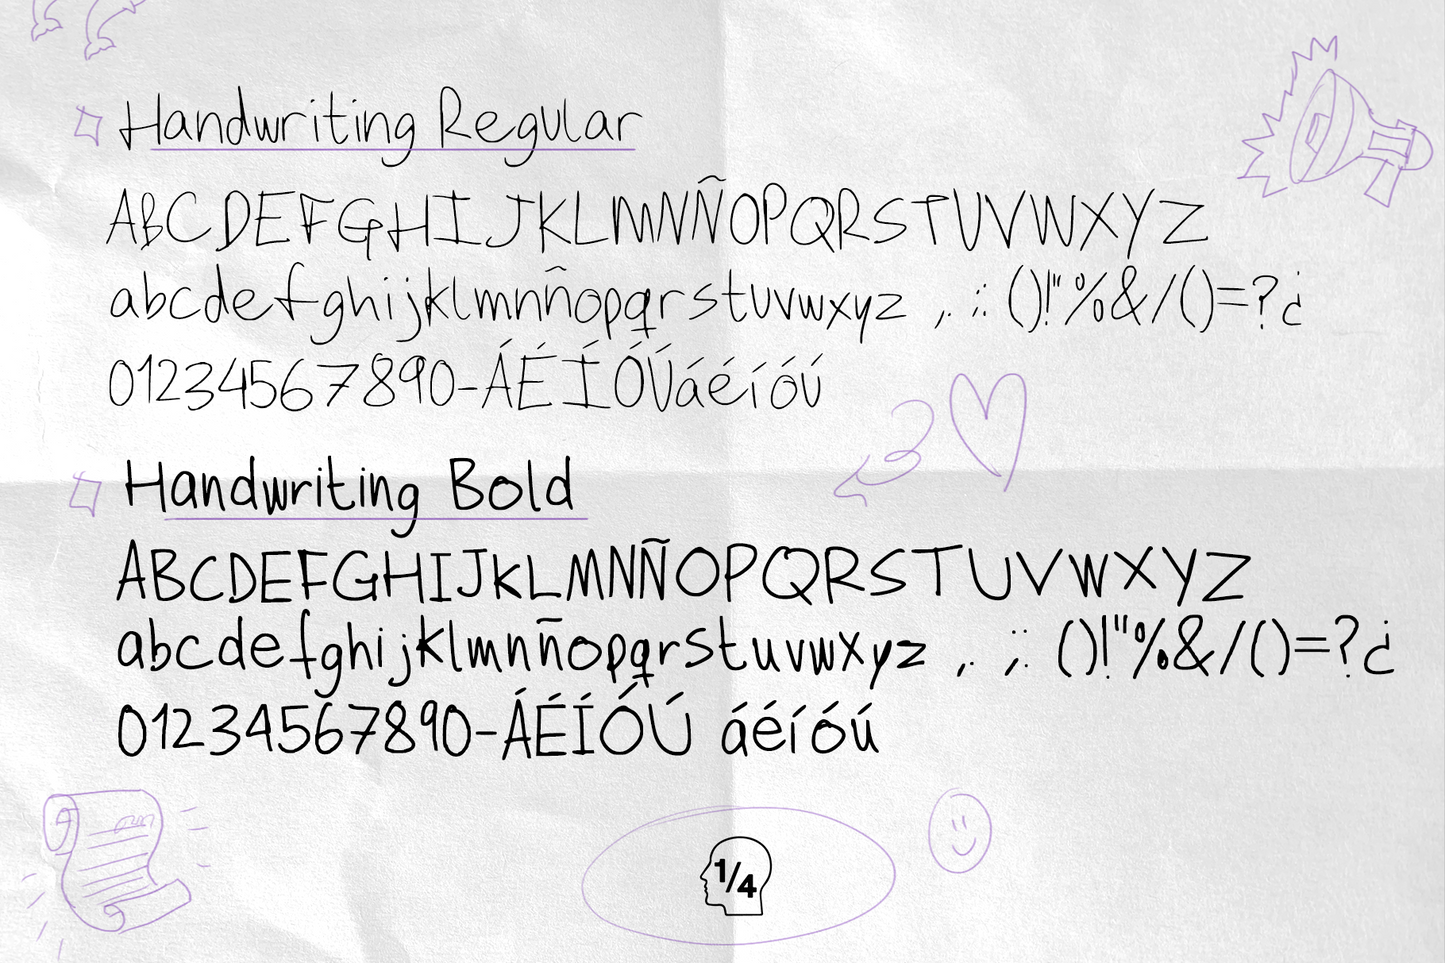 Handwriting Regular
ABCDEFGHIJKLMNÑOPQRSTUVWXYZ
abcdefghijklmnñopqrstuvwxyz ,. ;: ()!"%&/()=?¿
01234567890-ÁÉÍÓÚáéíóú
Handwriting Bold
ABCDEFGHIJKLMNÑOPQRSTUVWXYZ
abcdefghijklmnñopqrstuvwxyz ,. ;: ()!"%&/()=?¿
01234567890-ÁÉÍÓÚ áéíóú
1/4